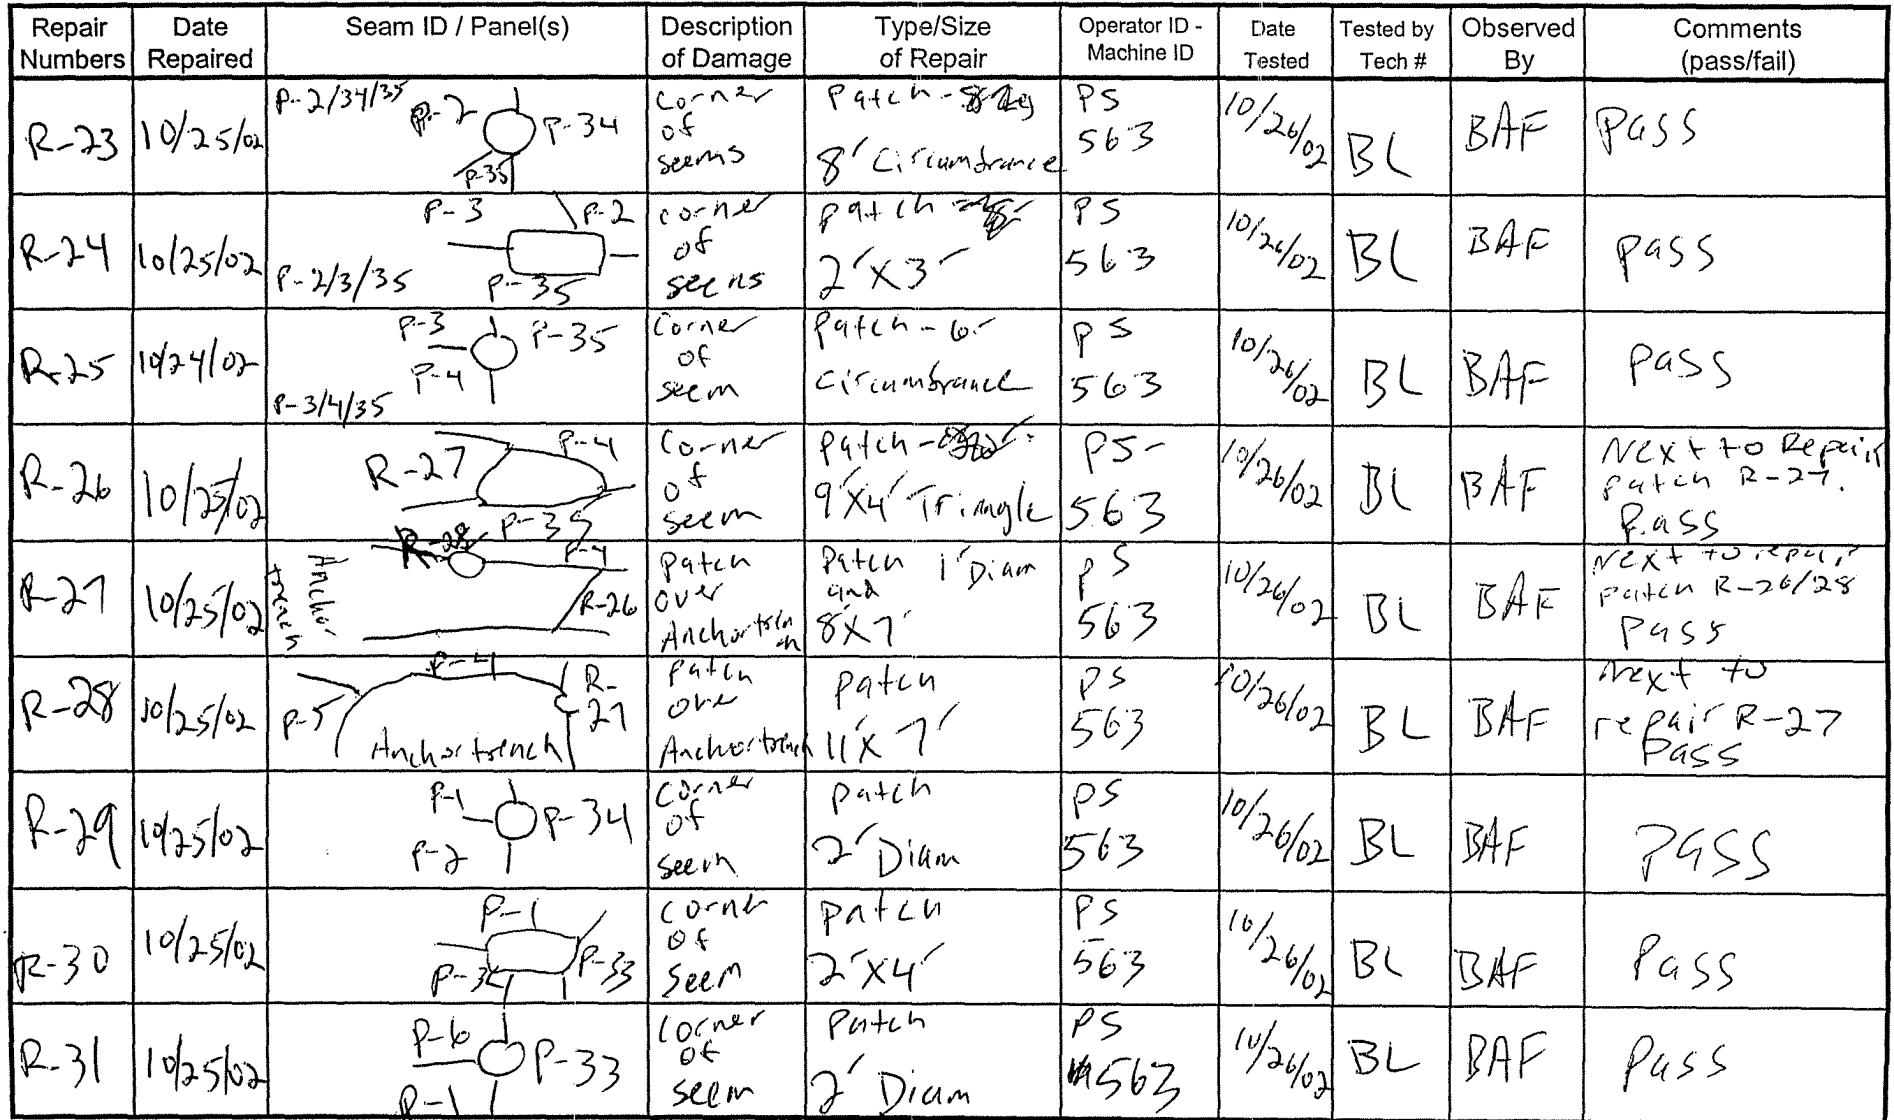 Repair Numbers
Date Repaired
Seam ID / Panel(s)
Description of Damage
Type/Size of Repair
Operator ID - Machine ID
Date Tested
Tested by Tech #
Observed By
Comments (pass/fail)
R-23
10/25/02
P-2/34/35
P-2
P-34
P-35
Corner
of
seems
Patch -
8' Circumfrance
PS
563
10/26/02
BL
BAF
Pass
R-24
10/25/02
P-3
P-2
P-2/3/35
P-35
corner
of
seems
patch
2'X3'
PS
563
10/26/02
BL
BAF
pass
R-25
10/24/02
P-3
P-35
P-4
P-3/4/35
Corner
of
seem
Patch - 6'
Circumbrance
PS
563
10/26/02
BL
BAF
pass
R-26
10/25/02
R-27
P-4
P-35
Corner
of
seem
Patch -
9'X4' Triangle
PS-
563
10/26/02
BL
BAF
Next to Repair
patch R-27.
Pass
R-27
10/25/02
Anchor
trench
R-28
P-4
R-26
Patch
over
Anchortren
ch
Patch 1' Diam
and
8'X7'
PS
563
10/26/02
BL
BAF
Next to repair
patch R-26/28
Pass
R-28
10/25/02
P-4
P-5
R-
27
Anchortrench
patch
over
Anchortrench
patch
11'X7'
PS
563
10/26/02
BL
BAF
Next to
repair R-27
Pass
R-29
10/25/02
P-1
P-34
P-2
corner
of
seem
patch
2' Diam
PS
563
10/26/02
BL
BAF
PASS
R-30
10/25/02
P-1
P-33
corner
of
seem
patch
2'X4'
PS
563
10/26/02
BL
BAF
Pass
R-31
10/25/02
P-6
P-33
P-1
corner
of
seem
Patch
2' Diam
PS
563
10/26/02
BL
BAF
Pass